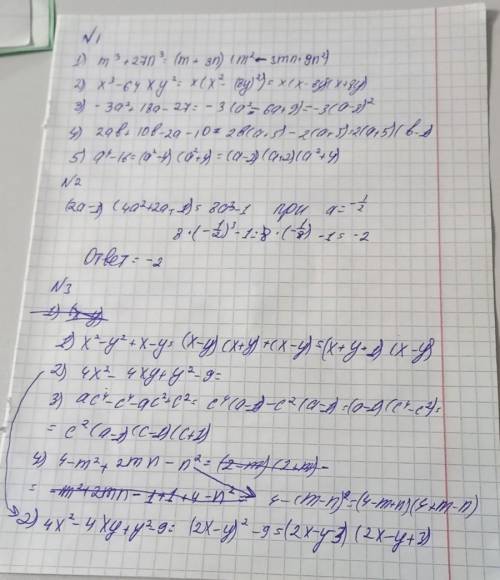 N1
1) m³+27n³=(m+3n)(m²-3mn+9n²)
2) x³-64xy²=x(x²-(8y)²)=x(x-8y)(x+8y)
3) -3a²+18a-27=-3(a²-6a+9)=-3(a-3)²
4) 2ab+10b-2a-10=2b(a+5)-2(a+5)=2(a+5)(b-1)
5) a⁴-16=(a²-4)(a²+4)=(a-2)(a+2)(a²+4)
N2
(2a-1)(4a²+2a+1)=8a³-1 при a=-1/2
8·(-1/2)³-1=8·(-1/8)-1=-2
Ответ=-2
N3
1)
1) x²-y²+x-y=(x-y)(x+y)+(x-y)=(x+y+1)(x-y)
2) 4x²-4xy+y²-9=
3) ac⁴-c⁴-ac²+c²=c⁴(a-1)-c²(a-1)=(a-1)(c⁴-c²)=
=c²(a-1)(c-1)(c+1)
4) 4-m²+2mn-n²=(2-m)(2+m)-
=-m²+2mn-1+1+4-n²= 4-(m-n)²=(4-m+n)(4+m-n)
2) 4x²-4xy+y²-9=(2x-y)²-9=(2x-y-3)(2x-y+3)